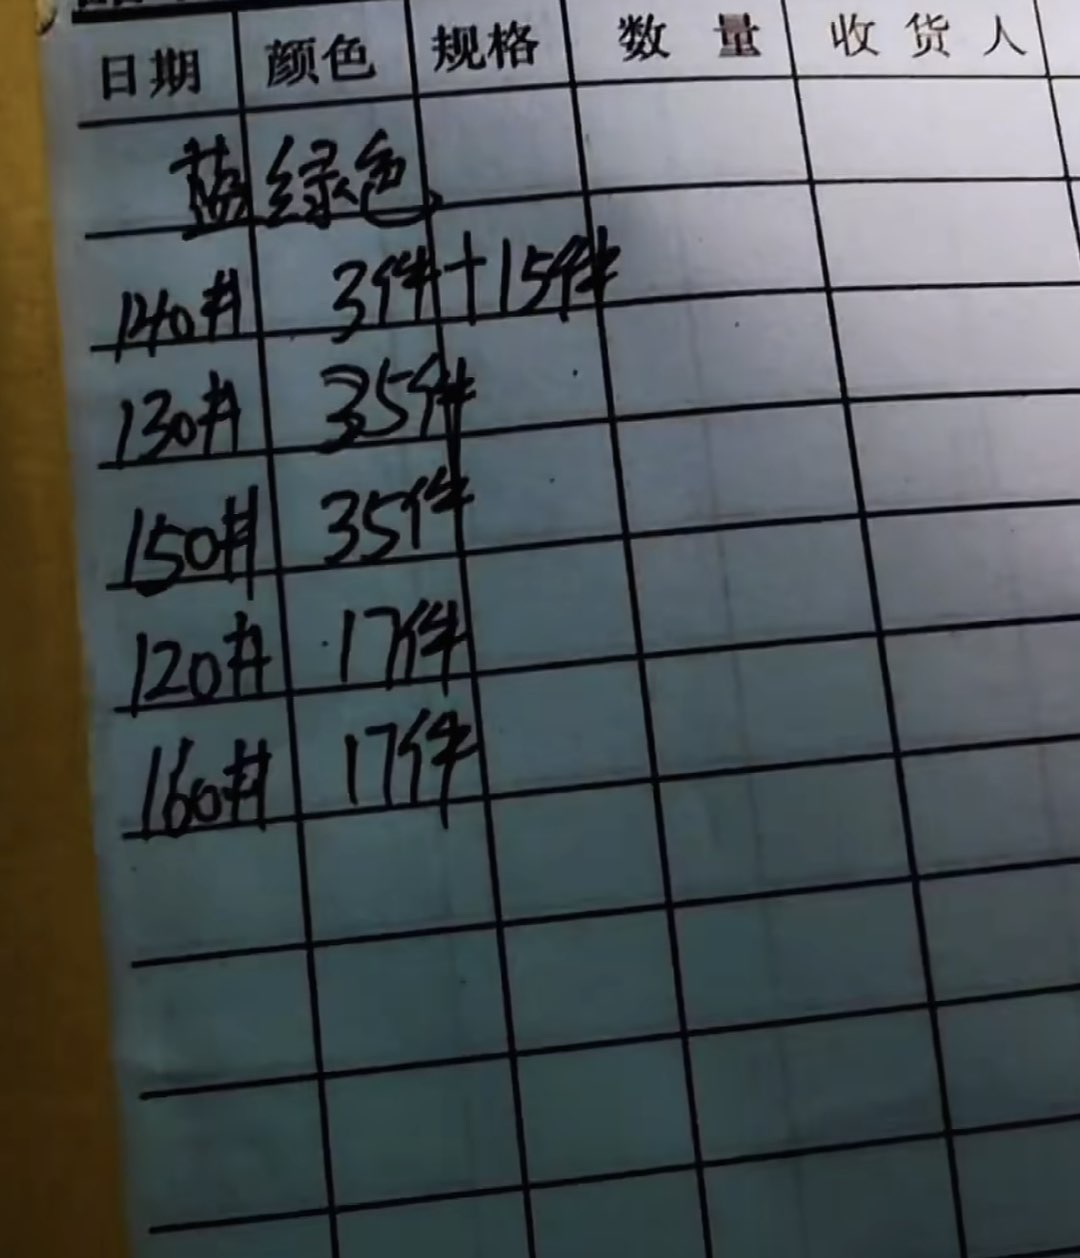 日期 颜色 规格 数量 收货人
蓝绿色
140# 3件+15件
130# 35件
150# 35件
120# 17件
160# 17件